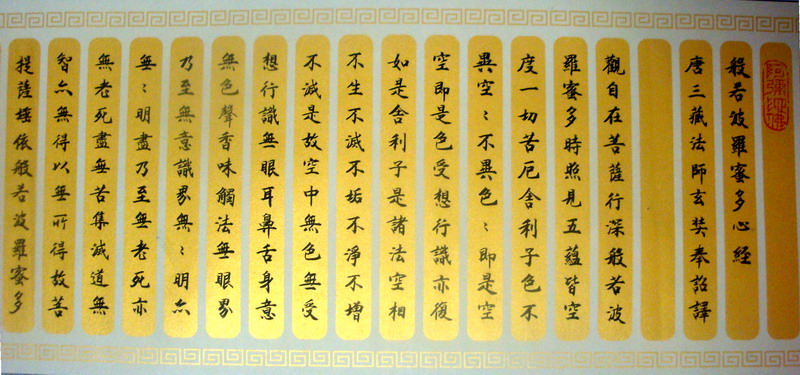 阿彌陀佛
般若波羅蜜多心經
唐三藏法師玄奘奉詔譯
觀自在菩薩行深般若波
羅蜜多時照見五蘊皆空
度一切苦厄舍利子色不
異空〻不異色〻即是空
空即是色受想行識亦復
如是舍利子是諸法空相
不生不滅不垢不淨不增
不減是故空中無色無受
想行識無眼耳鼻舌身意
無色聲香味觸法無眼界
乃至無意識界無〻明亦
無〻明盡乃至無老死亦
無老死盡無苦集滅道無
智亦無得以無所得故菩
提薩埵依般若波羅蜜多